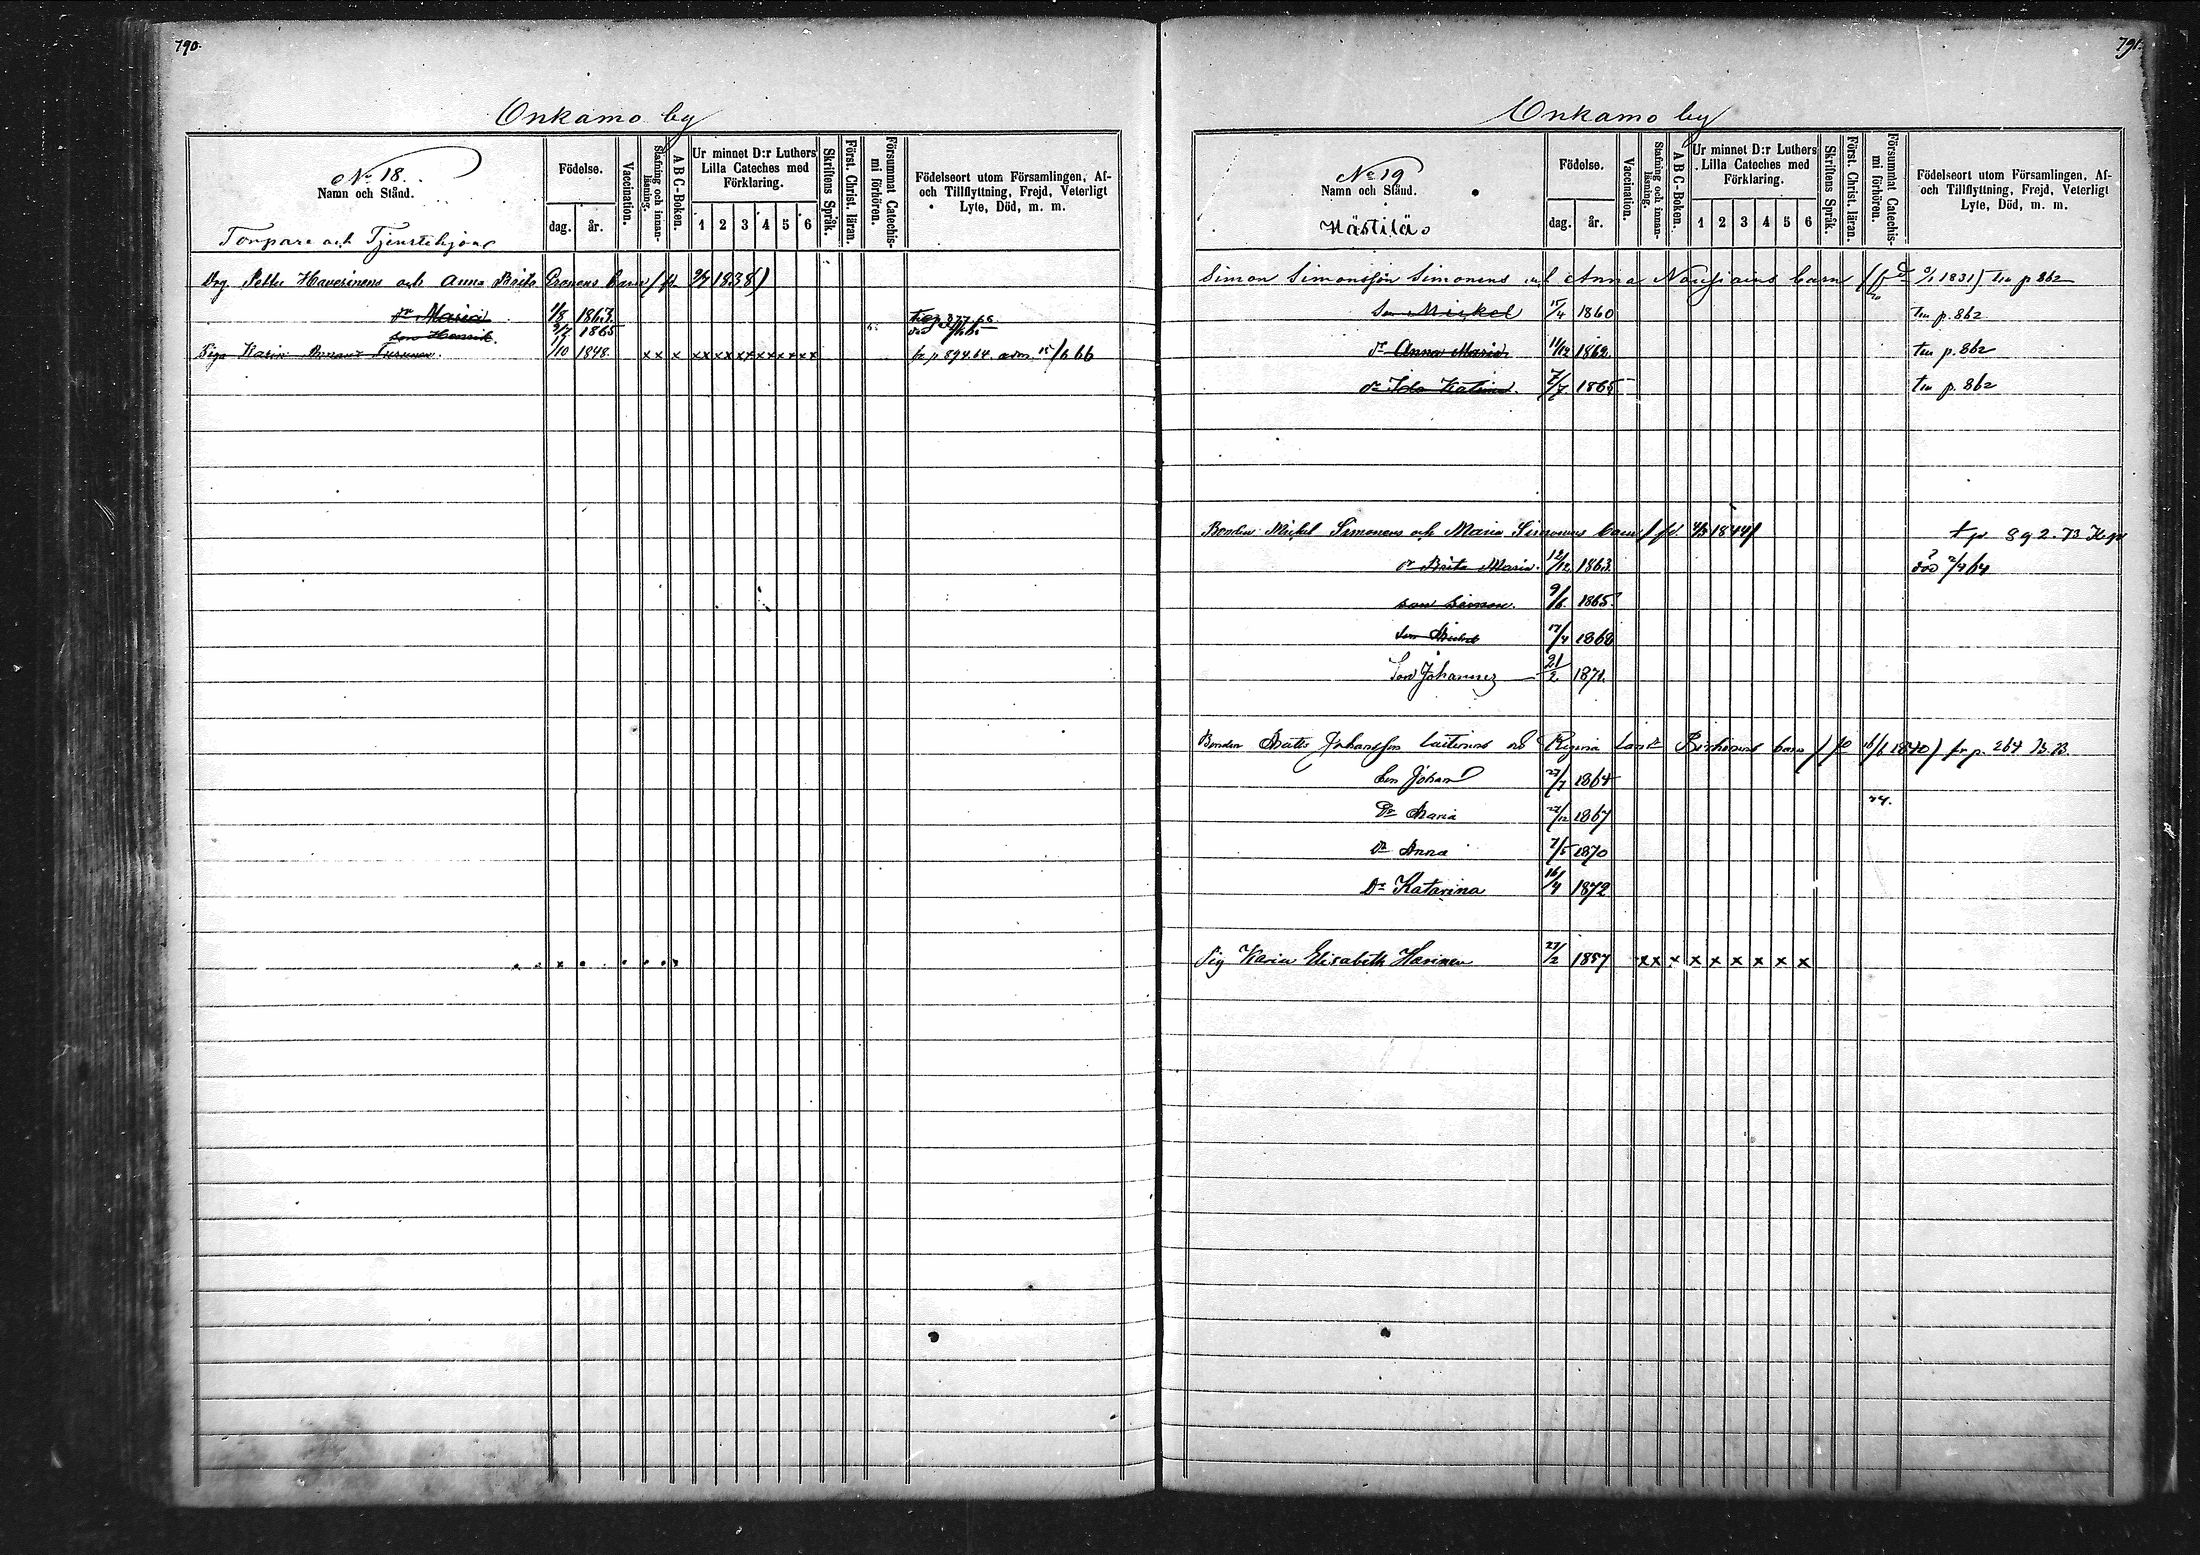 790.
Onkamo by
No 18.
Namn och Stånd.
Torpare och Tjenstehjon
Födelse.
dag. år.
Vaccination.
Stafning och innanläsning.
A B C-Boken.
Ur minnet D:r Luthers Lilla Cateches med Förklaring.
1 2 3 4 5 6
Skriftens Språk.
Först. Christ. läran.
Försummat Catechismi förhören.
Födelseort utom Församlingen, Af- och Tillflyttning, Frejd, Veterligt Lyte, Död, m. m.
Drg. Petter Haverinens och Anna Brita barn 1838)
dr Maria 1/8 1863
son Henrik 1865
Piga Karin Turunen. /10 1848. xx x xx xx xx xx xx xx fr p 894.64 adm. 15/6 66
791.
Onkamo by
No 19
Namn och Stånd.
Hästilä
Födelse.
dag. år.
Vaccination.
Stafning och innanläsning.
A B C-Boken.
Ur minnet D:r Luthers Lilla Cateches med Förklaring.
1 2 3 4 5 6
Skriftens Språk.
Först. Christ. läran.
Försummat Catechismi förhören.
Födelseort utom Församlingen, Af- och Tillflyttning, Frejd, Veterligt Lyte, Död, m. m.
Simon Simonsson Simonens och Anna barn 1831) p 862
Son Mickel 15/4 1860 p. 862
dr Anna Maria 11/12 1862 p. 862
dr Ida Katarina. 1865 p. 862
Bonden Mickel Simonens och Maria barn 1844) 892. 73
dr Brita Maria. 12/12 1863. död 64
son Simon. 9/6. 1865.
Son Mickel 17/4 1868
Son Johannes 21/2 1871.
Bonden Matts Johansson och Regina barn 1840) fr p. 264 B.B.
Son Johan 27/7 1864
Dr Maria 27/12 1867 74.
Dr Anna 7/5 1870
Dr Katarina 16/4 1872
Pig Karin Elisabeth Harinen 27/2 1857 xx x x x x x x x